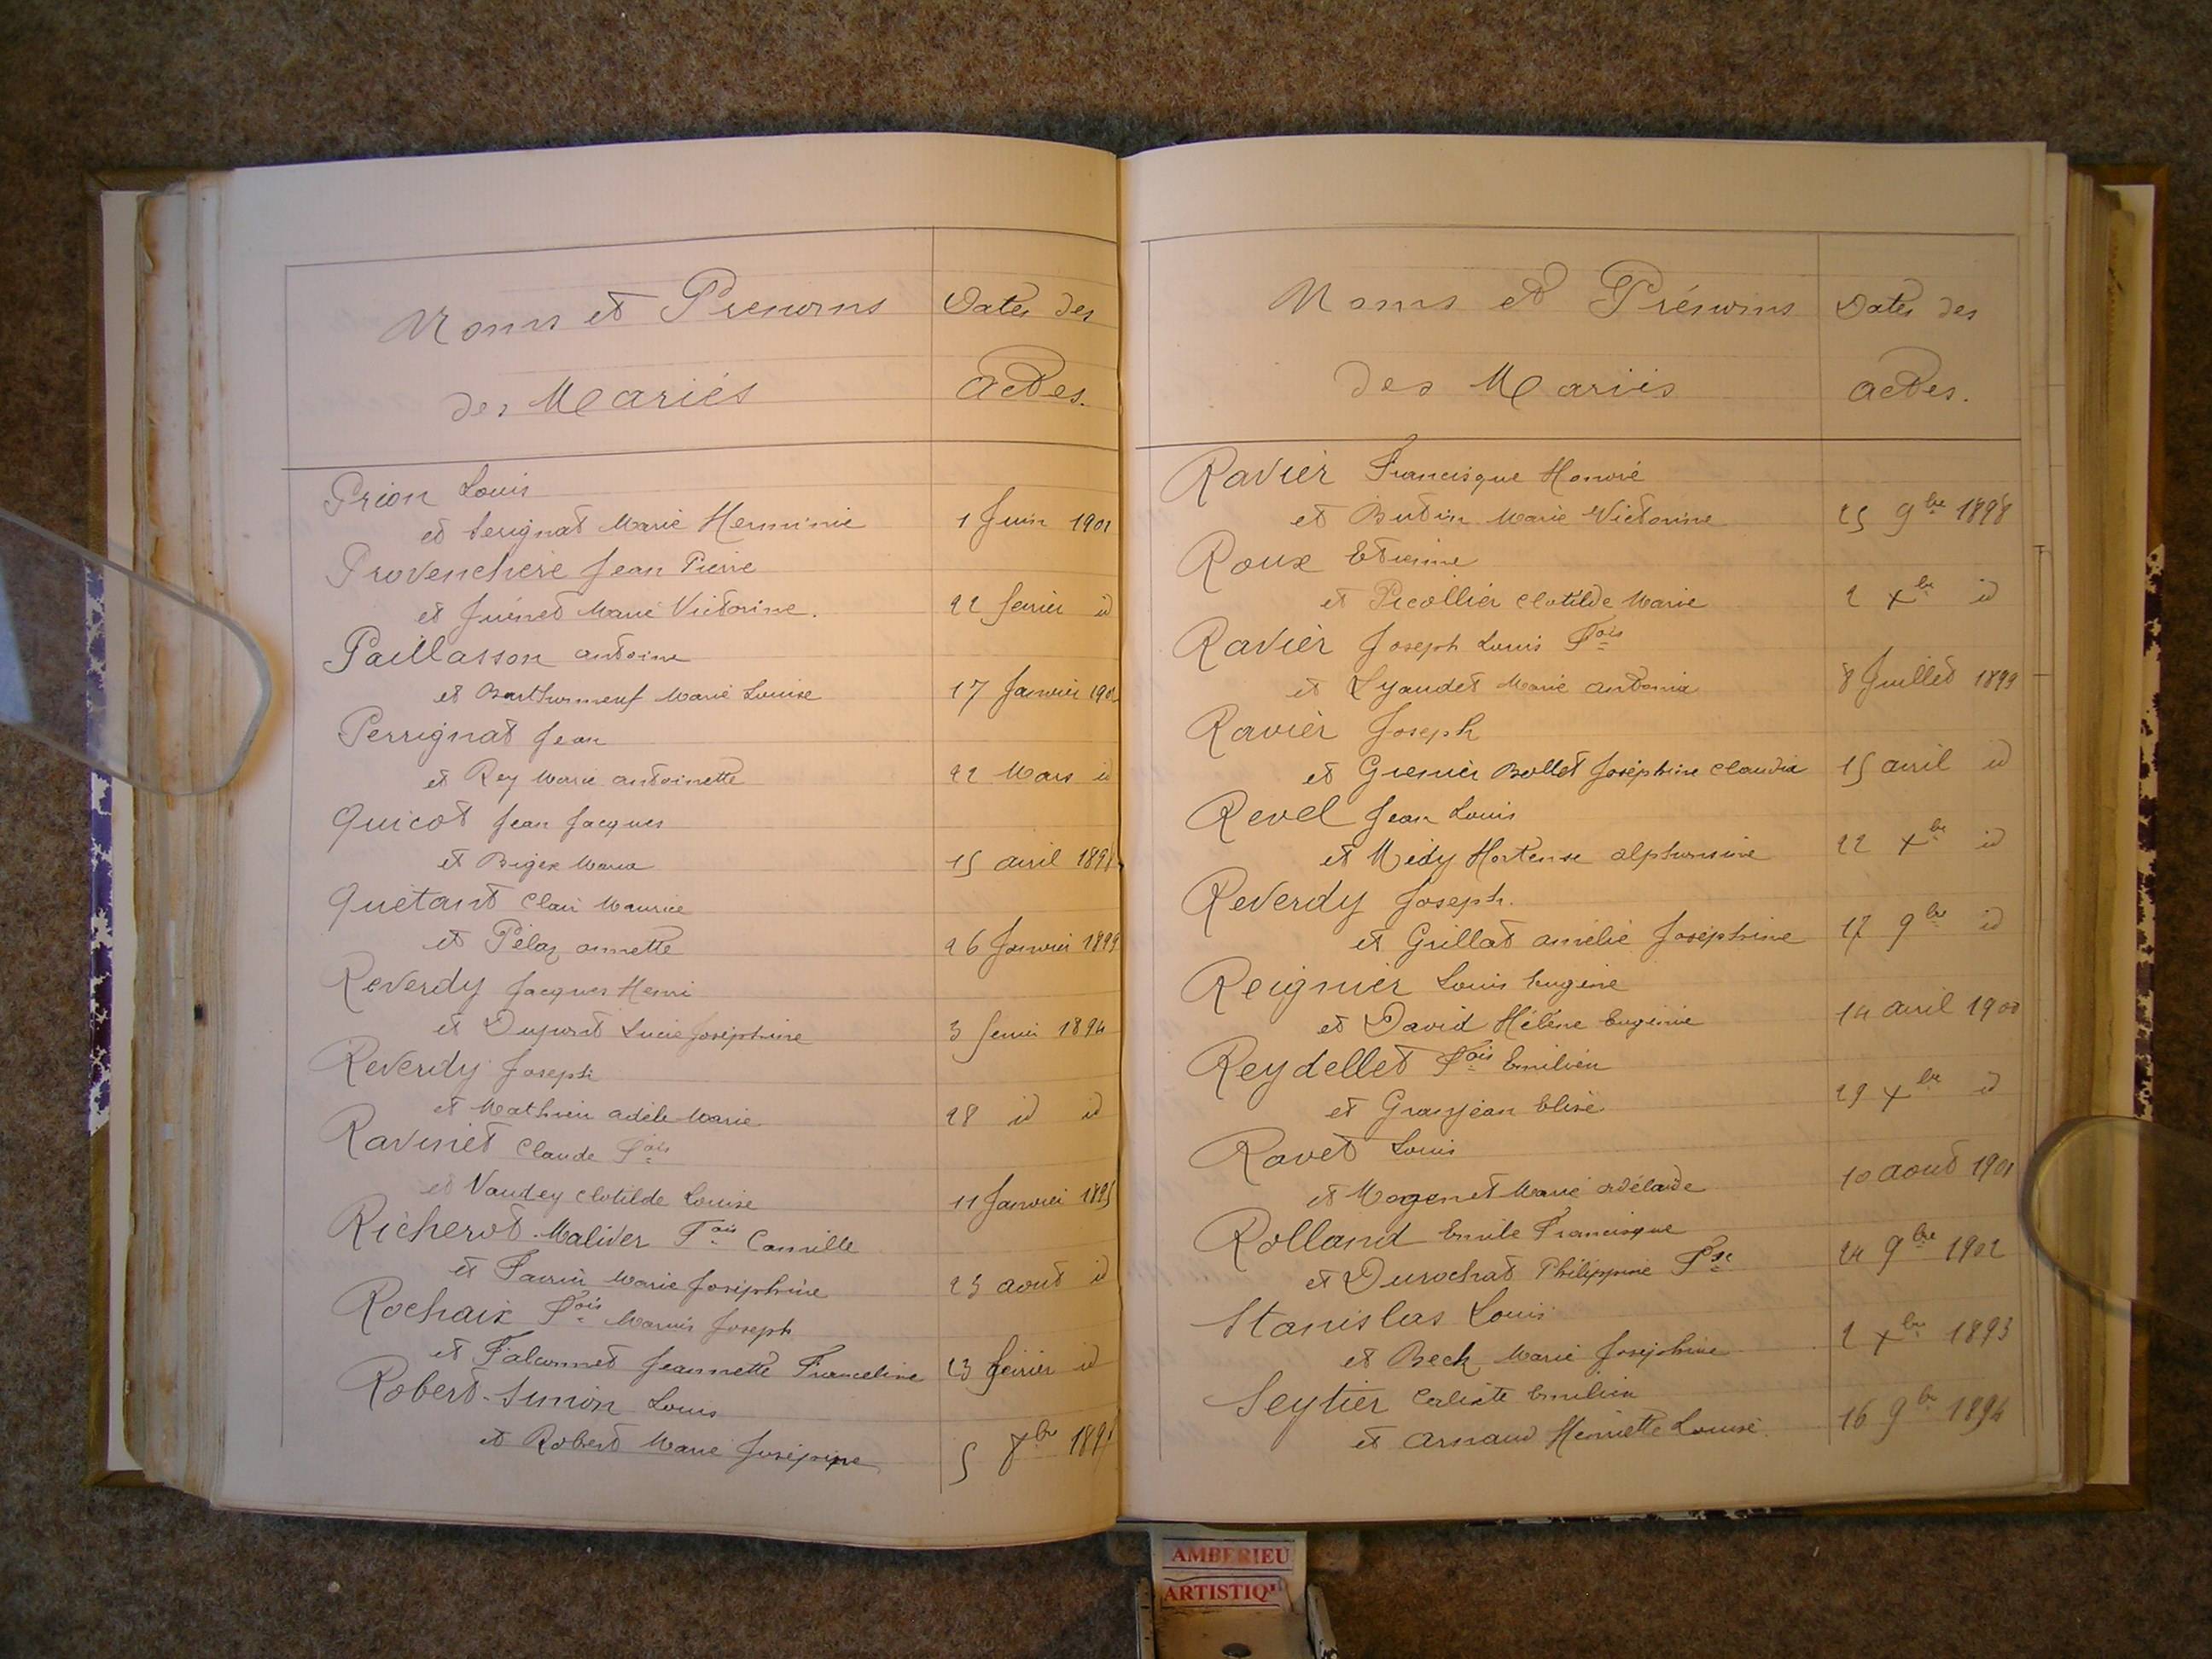 Noms et Prenoms
des Mariés
Dates des
actes.
Prion Louis
et Serignat Marie Herminie 1 Juin 1901
Provenchère Jean Pierre
et Juénet Marie Victorine. 22 fevrier id
Paillasson antoine
et Marie Louise 17 Janvier
Perrignat Jean
et Rey Marie antoinette 22 Mars id
Quicot Jean Jacques
et Bigex Maria 15 avril
Quétant Clair Maurice
et Pélaz annette 26 Janvier 1899
Reverdy Jacques Henri
et Dupont Lucie Joséphine 3 fevrier 1894
Reverdy Joseph
et Mathieu adèle Marie 28 id id
Ravinet Claude Fois
et Vaudey Clotilde Louise 11 Janvier 1895
Richerot-Maliver Fois Camille
et Favrin Marie Joséphine 23 aout id
Rochaix Fois Marius Joseph
et Falconnet Jeannette Franceline 23 fevrier id
Robert-Simon Louis
et Robert Marie Joséphine 5
Noms et Prénoms
des Mariés
Dates des
actes.
Ravier Francisque Honoré
et Butin Marie Victorine 25 9bre 1898
Roux Etienne
et Picollier Clotilde Marie 2 Xbre id
Ravier Joseph Louis Fois
et Lyaudet Marie antonia 8 Juillet 1899
Ravier Joseph
et Grenier Bollet Joséphine Claudia 15 avril id
Revel Jean Louis
et Médy Hortense alphonsine 22 Xbre id
Reverdy Joseph.
et Grillat amélie Joséphine 17 9bre id
Reignier Louis Eugène
et David Hélène Eugénie 14 avril 1900
Reydellet Fois Emilien
et Granjean Elise 29 Xbre id
Ravet Louis
et Magenet Marie adélaïde 10 aout 1901
Rolland Emile Francisque
et Durochat Philippine Fse 24 9bre 1902
Stanislas Louis
et Beck Marie Joséphine 2 Xbre 1893
Seytier Calixte Emilien
et Arnaud Henriette Louise. 16 9bre 1894
AMBERIEU
ARTISTIQU